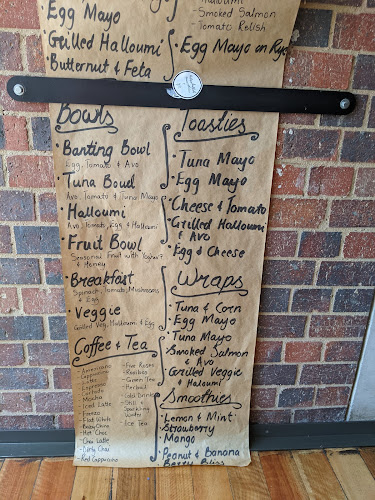 Egg Mayo
Grilled Halloumi
Butternut & Feta
Halloumi
- Smoked Salmon
- Tomato Relish
Egg Mayo on Rye
Bowls
Banting Bowl
Egg, Tomato & Avo
Tuna Bowl
Avo, Tomato & Tuna Mayo
Halloumi
Avo, Tomato, Egg & Halloumi
Fruit Bowl
Seasonal Fruit with Yogurt
& Honey
Breakfast
Spinach, Tomato, Mushrooms
& Egg
Veggie
Grilled Veg, Halloumi & Egg
Coffee & Tea
- Americano
- Cappuccino
- Latte
- Espresso
- Mocha
- Iced Latte
- Flat White
- Baby Chino
- Hot Choc
- Chai Latte
- Dirty Chai
- Red Cappuccino
- Five Roses
- Rooibos
- Green Tea
- Herbal
- Cold Drinks
- Still &
Sparkling
Water
- Ice Tea
Toasties
Tuna Mayo
Egg Mayo
Cheese & Tomato
Grilled Halloumi
& Avo
Egg & Cheese
Wraps
Tuna & Corn
Egg Mayo
Tuna Mayo
Smoked Salmon
& Avo
Grilled Veggie
& Haloumi
Smoothies
Lemon & Mint
Strawberry
Mango
Peanut & Banana
Berry Bliss